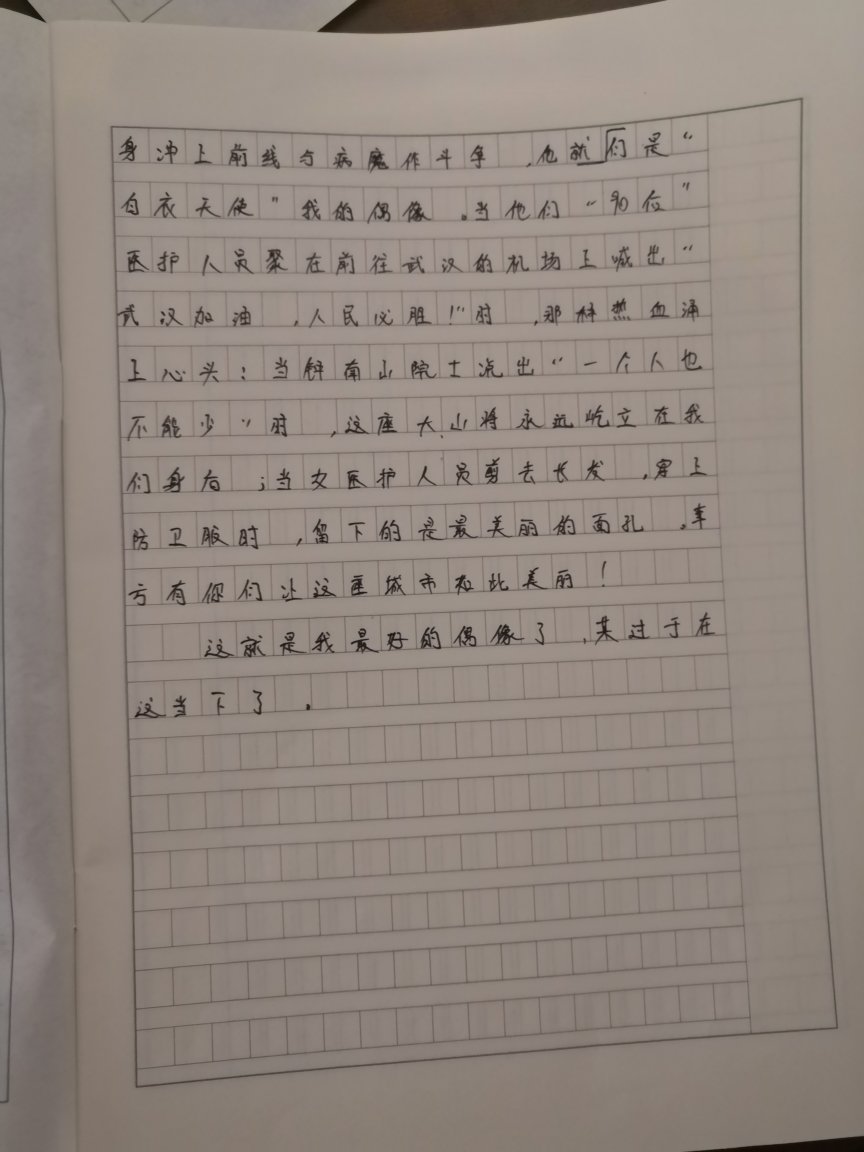 身冲上前线与病魔作斗争，他就们是“
白衣天使”我的偶像。当他们“90位”
医护人员聚在前往武汉的机场上喊出“
武汉加油，人民必胜！”时，那种热血涌
上心头；当钟南山院士流出“一个人也
不能少”时，这座大山将永远屹立在我
们身后；当女医护人员剪去长发，穿上
防卫服时，留下的是最美丽的面孔。幸
亏有你们让这座城市如此美丽！
这就是我最好的偶像了，莫过于在
这当下了。